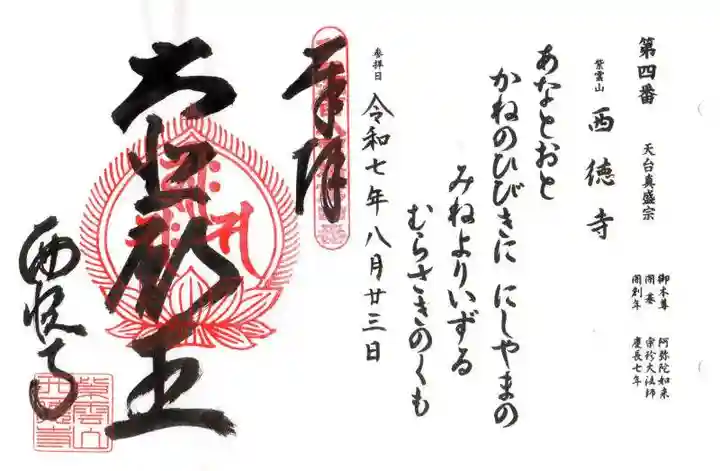 第四番　天台真盛宗
御本尊　阿弥陀如来
開基　宗珍大法師
開創年　慶長七年
紫雲山　西徳寺
あなとおと
かねのひびきに にしやまの
みねよりいずる
むらさきのくも
参拝日　令和七年八月廿三日
奉拝
大
王
西徳寺
紫雲山
西徳寺